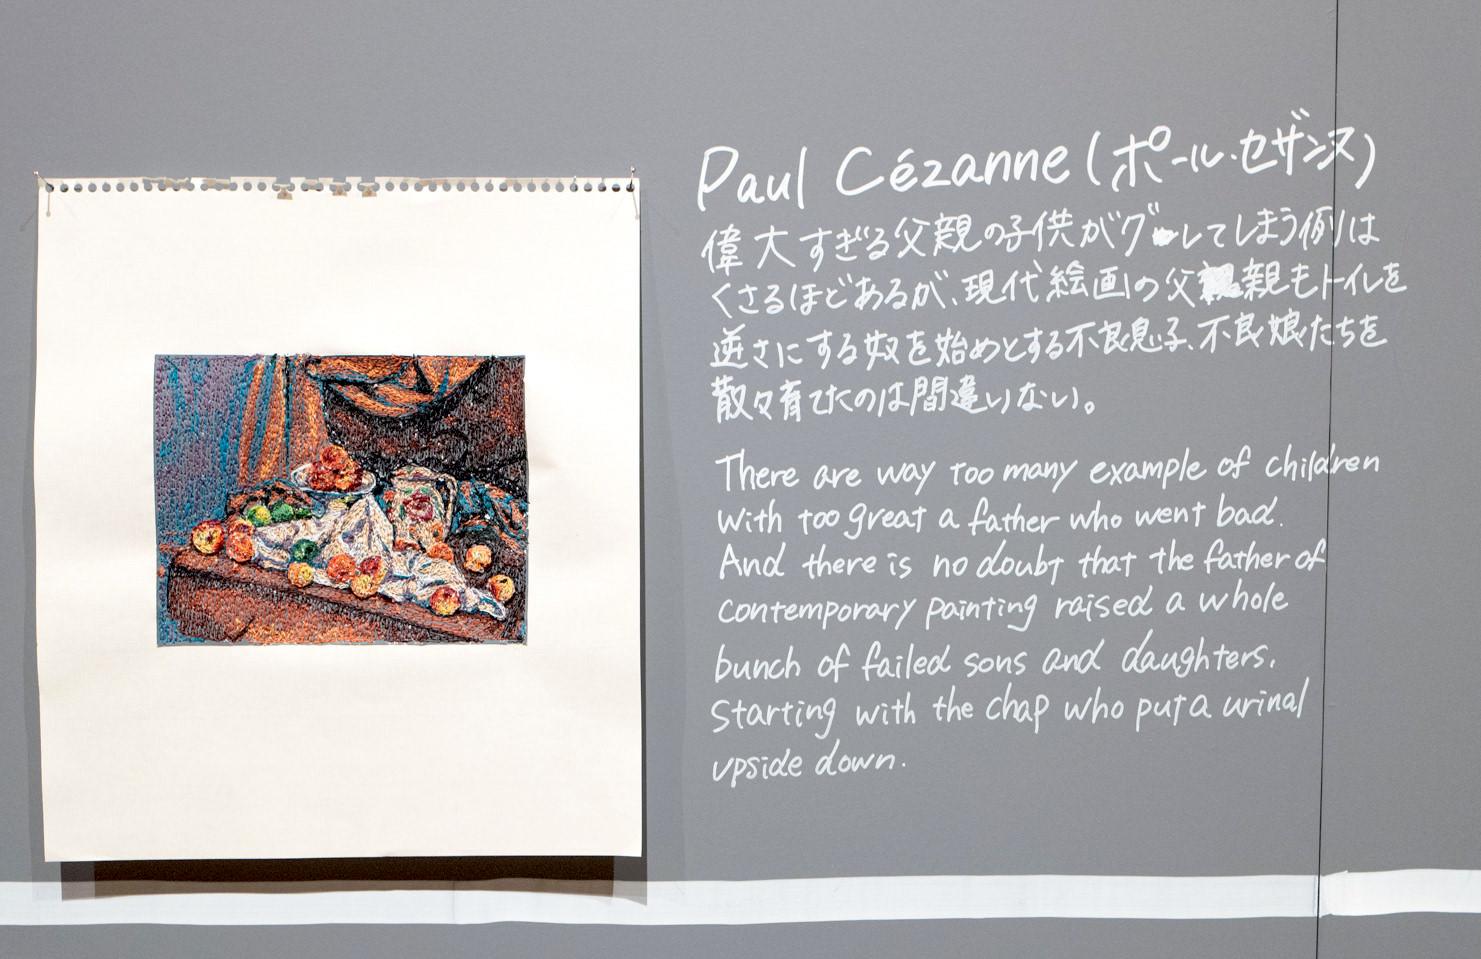 Paul Cézanne (ポール・セザンヌ)
偉大すぎる父親の子供がグレてしまう例は
くさるほどあるが、現代絵画の父親もトイレを
逆さにする奴を始めとする不良息子、不良娘たちを
散々育てたのは間違いない。
There are way too many example of children
with too great a father who went bad.
And there is no doubt that the father of
contemporary painting raised a whole
bunch of failed sons and daughters,
starting with the chap who put a urinal
upside down.